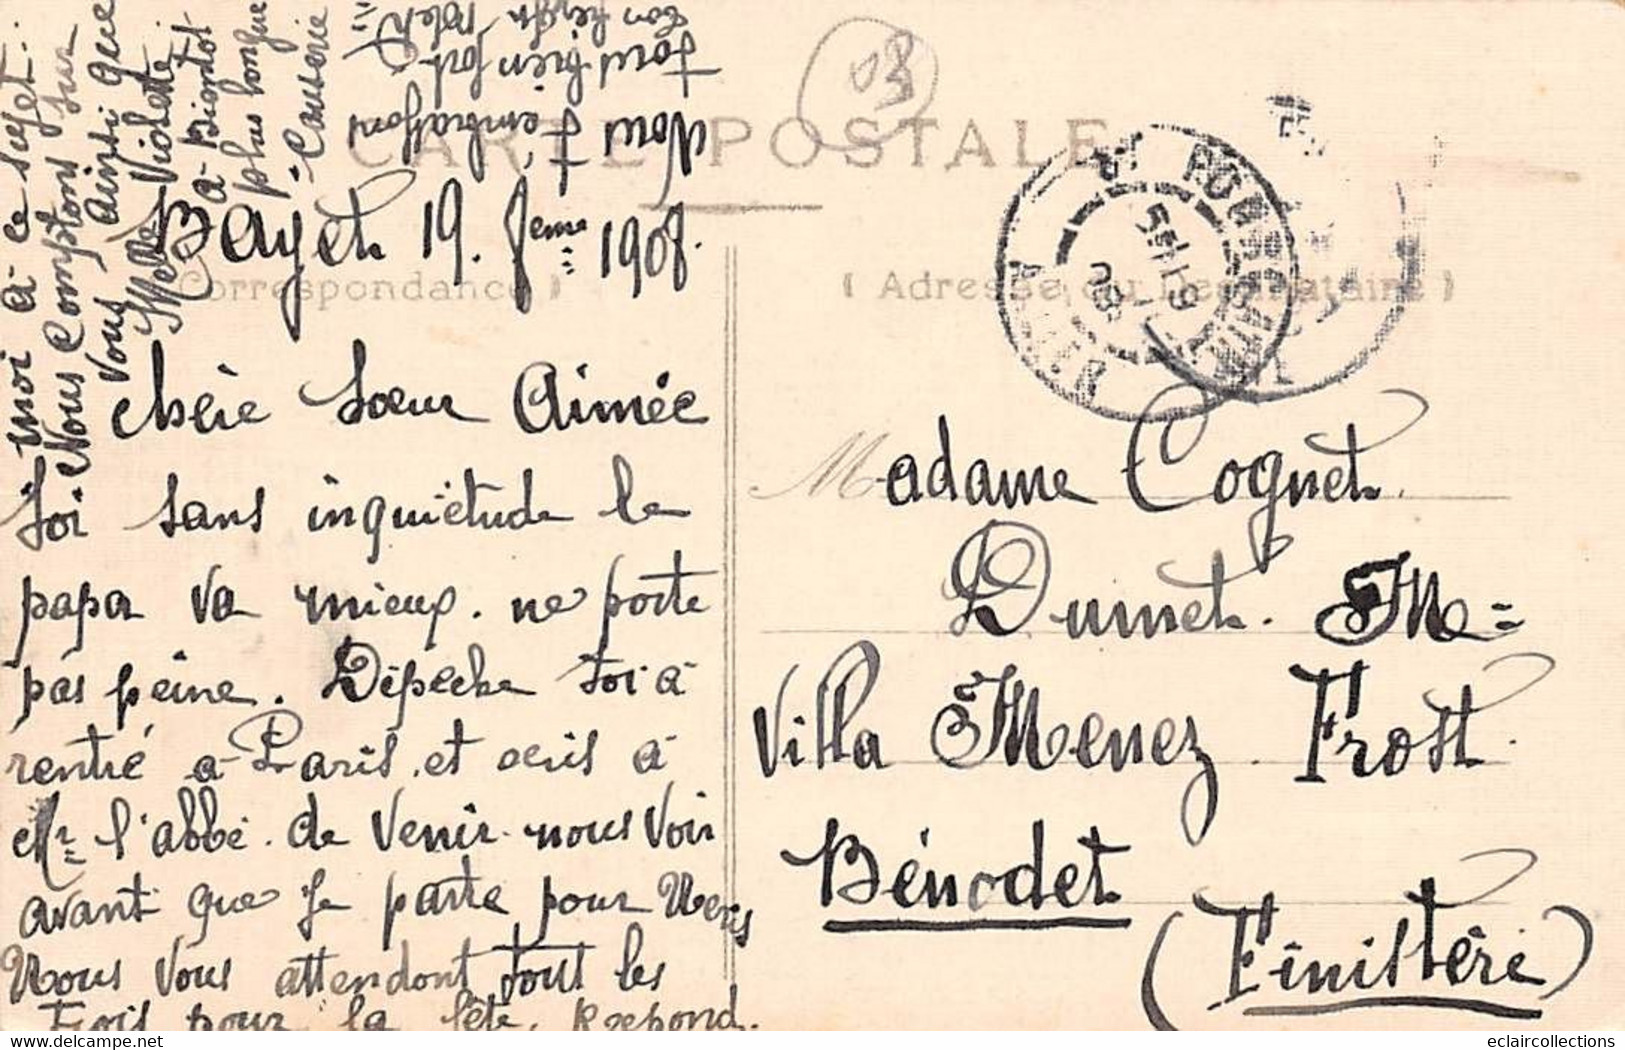 CARTE POSTALE
(Correspondance)
(Adresse du Destinataire)
Bayet 19. 7eme 1908.
Chère Soeur Aimée
Soi sans inquiétude le
papa va mieux. ne porte
pas peine. Dépeche toi à
rentré à Paris. et ecris à
Mr l'abbé. de venir nous voir
avant que je parte pour Neris
Nous vous attendont tout les
Trois pour la fête. Repond.
moi à ce sujet.
Nous Comptons sur
Vous Ainsi que
Melle Violette
à Biontôt
plus longue
Causerie
Nous t'embrassons
tous bien fort
Ton
Madame Cognet
Dumet. Me=
Villa Menez Frost.
Bénodet
(Finistère)
ST POURÇAIN
ALLIER
03
eclaircollections